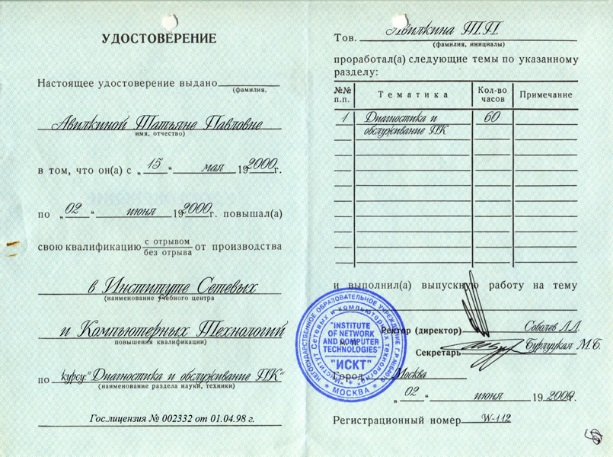 УДОСТОВЕРЕНИЕ
Настоящее удостоверение выдано
(фамилия,
Авилкиной Татьяне Павловне
имя, отчество)
в том, что он(а) с „15“ мая 19 2000г.
по „02“ июня 19 2000г. повышал(а)
свою квалификацию с отрывом от производства
без отрыва
в Институте Сетевых
(наименование учебного центра
и Компьютерных Технологий
повышения квалификации)
по курсу "Диагностика и обслуживание ПК"
(наименование раздела науки, техники)
Гослицензия № 002332 от 01.04.98 г.
Тов. Авилкина Т.П.
(фамилия, инициалы)
проработал(а) следующие темы по указанному
разделу:
№№ п.п. Тематика Кол-во часов Примечание
1 Диагностика и 60
обслуживание ПК
и выполнил(а) выпускную работу на тему
Ректор (директор)
Секретарь
Город Москва
„02“ июня 19 2000г.
Регистрационный номер W-112
"INSTITUTE
OF NETWORK
AND COMPUTER
TECHNOLOGIES"
"ИСКТ"
МОСКВА